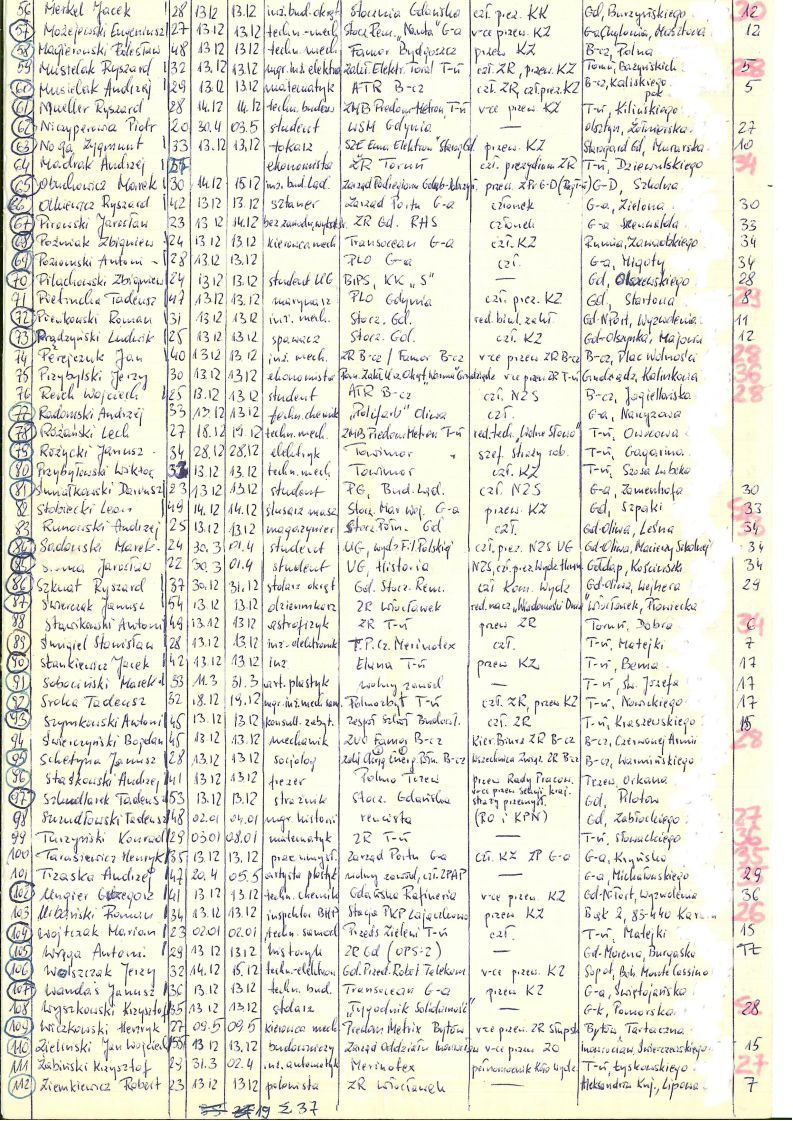 56 Merkel Jacek 28 13.12 13.12 inż. bud. okręt Stocznia Gdańska czł. prez. KK Gd, Burzyńskiego 12
57 Możejewski Eugeniusz 27 13.12 13.12 techn.-mech. Stocz. Rem. "Nauta" G-a v-ce przew. KZ G-a Chylonia, 12
58 Magierowski Bolesław 48 13.12 13.12 techn. mech. Famor Bydgoszcz przew. KZ B-cz, Polna
59 Musielak Ryszard 32 13.12 13.12 mgr. inż. elektr. Zakł. Elektr. Toral T-ń czł. ZR, przew. KZ Toruń, Bażyńskich 5
60 Musielak Andrzej 29 13.12 13.12 matematyk ATR B-cz czł. ZR, czł. prez. KZ B-cz, Kaliskiego 5
61 Mueller Ryszard 28 14.12 14.12 techn. budow. ZMB Predom-Metron T-ń v-ce przew. KZ T-ń, Kilińskiego
62 Niczyperowa Piotr 20 30.4 03.5 student WSM Gdynia — Olsztyn, Żołnierska 27
63 Noga Zygmunt 33 13.12 13.12 tokarz SZE Ema Elektron "Starog Gd. przew. KZ Starogard Gd, Murarska 10
64 Mądrak Andrzej 37 ekonomista ZR Toruń czł. prezydium ZR T-ń, Dziewulskiego 34
65 Obuchowicz Marek 30 14.12 15.12 inż. bud. ląd. G-D, Szkolna
66 Olkiewicz Ryszard 42 13.12 13.12 sztauer Zarząd Portu G-a członek G-a, Zielona 30
67 Pirowski Jarosław 23 13.12 14.12 bez zawodu, ZR Gd. RHS członek G-a 33
68 Poźniak Zbigniew 24 13.12 13.12 kierowca mech Transocean G-a czł. KZ Rumia, 34
69 Poziomski Antoni 28 13.12 13.12 PLO G-a czł. G-a, Migały 34
70 Pilachowski Zbigniew 24 13.12 13.12 student UG BiPS, KK "S" — Gd, Olszewskiego 28
71 Pietrucha Tadeusz 47 13.12 13.12 marynarz PLO Gdynia czł. prez. KZ Gd, Startowa 8
72 Pieńkowski Roman 31 13.12 13.12 inż. mech. Stocz. Gd. red. biul. zakł Gd-N.Port, Wyzwolenia 11
73 Prądzyński Ludwik 25 13.12 13.12 spawacz Stocz. Gd. czł. KZ Gd-Olszynka, Majowa 12
74 Perejczuk Jan 40 13.12 13.12 inż. mech. ZR B-cz / Famor B-cz v-ce przew ZR B-cz B-cz, Plac Wolności 28
75 Przybylski Jerzy 30 13.12 13.12 ekonomista v-ce przew ZR T-ń Grudziądz, Kalinkowa 36
76 Reich Wojciech 25 13.12 13.12 student ATR B-cz czł. NZS B-cz, Jagiellońska 28
77 Radomski Andrzej 33 13.12 13.12 techn. chemik "Polifarb" Oliwa czł. G-a, Narcyzowa
78 Różański Lech 27 18.12 19.12 techn. mech. ZMB Predom Metron T-ń red. tech. "Wolne Słowo" T-ń, Owsiana
79 Rożycki Janusz 34 28.12 28.12 elektryk Towimor szef straży rob. T-ń, Gagarina
80 Przybyłowski Wiktor 33 13.12 13.12 techn. mech. Towimor czł. KZ T-ń, Szosa Lubicka
81 Śmiałkowski Dariusz 23 13.12 13.12 student PG, Bud. Ląd. czł. NZS G-a, Zamenhofa 30
82 Słobiecki Leon 49 14.12 14.12 ślusarz masz Stocz. Mar. Woj. G-a przew. KZ Gd, Szpaki 33
83 Runowski Andrzej 25 13.12 13.12 magazynier Stocz. Półn. Gd czł. Gd-Oliwa, Leśna 34
84 Sadowski Marek 24 30.3 01.4 student UG, wydz. Fil. Polskiej czł. prez. NZS UG Gd-Oliwa, Macierzy Szkolnej 34
85 Jarosław 22 30.3 01.4 student UG, Historia NZS, czł. prez. Wydz. Hum Gołdap, Kościuszki 34
86 Szkuat Ryszard 37 30.12 31.12 stolarz okręt Gd. Stocz. Rem. czł Kom. Wydz Gd-Oliwa, Wejhera 29
87 Świerczak Janusz 54 13.12 13.12 dziennikarz ZR Włocławek red. nacz. "Wiadomości Dnia" Włocławek, Płowiecka
88 Stawikowski Antoni 49 13.12 13.12 astrofizyk ZR T-ń przew ZR Toruń, Dobra 6
89 Śmigiel Stanisław 28 13.12 13.12 inż. elektronik P.P. Cz. Merinotex czł. T-ń, Matejki 7
90 Stankiewicz Jacek 42 13.12 13.12 inż Elana T-ń przew KZ T-ń, Bema 17
91 Sobociński Marek 33 11.3 31.3 art. plastyk wolny zawód — T-ń, Św. Józefa 17
92 Sroka Tadeusz 32 18.12 19.12 mgr. inż. mech. sam. Polmozbyt T-ń czł. ZR, przew KZ T-ń, Nowickiego 17
93 Szymkowski Antoni 45 13.12 13.12 konsult. zabyt. Zespół Szkół Budowl. czł. ZR T-ń, Kraszewskiego 15
94 Świerczyński Bogdan 45 13.12 13.12 mechanik ZUO Famor B-cz Kier. Biura ZR B-cz B-cz, Czerwonej Armii 28
95 Schetyna Janusz 28 13.12 13.12 socjolog Zakł. Okręg Energ. Półn. B-cz Wszechnica Związk. ZR B-cz B-cz, Warmińskiego
96 Staśkowski Andrzej 41 13.12 13.12 frezer Polmo Tczew przew Rady Pracow. Tczew, Orkana
97 Szludlarek Tadeusz 53 13.12 13.12 strażnik Stocz. Gdańska v-ce przew sekcji kraj. straży przemysł. Gd, Pilotów
98 Szczudłowski Tadeusz 48 02.01 04.01 mgr. historii rencista (RO i KPN) Gd, Zabłockiego 27
99 Turzyński Konrad 29 03.01 08.01 matematyk ZR T-ń — T-ń, Słowackiego 36
100 Tarasiewicz Henryk 35 13.12 13.12 prac. umysł. Zarząd Portu G-a czł. KZ ZP G-a G-a, Kryńska 35
101 Trzaska Andrzej 47 20.4 05.5 artysta plastyk wolny zawód, czł. ZPAP — G-a Michałowskiego 29
102 Ungier Grzegorz 41 13.12 13.12 techn. chemik Gdańska Rafineria v-ce przew. KZ Gd-N.Port, Wyzwolenia 36
103 Urbański Roman 34 13.12 13.12 inspektor BHP Stacja PKP Łajączkowo przew KZ Bąk 2, 83-440 26
104 Wojtczak Marian 23 02.01 02.01 techn. samoch Przeds. Zieleni T-ń czł. T-ń, Matejki 15
105 Wręga Antoni 29 13.12 13.12 historyk ZR Gd (OPS-Z) — Gd-Morena, Burgaska TZ
106 Walszczak Jerzy 32 14.12 15.12 techn.-elektron Gd. Przed. Robót Telekom v-ce przew. KZ Sopot, Boh. Monte Cassino
107 Wandas Janusz 36 13.12 13.12 techn. bud. Transocean G-a przew KZ G-a, Świętojańska
108 Wyszkowski Krzysztof 35 13.12 13.12 stolarz "Tygodnik Solidarność" — G-k, Pomorska 28
109 Wiczkowski Henryk 27 09.5 09.5 kierowca mech Predom Metrix Bytów v-ce przew. ZR Słupsk Bytów Tartaczna
110 Zieliński Jan Wojciech 55 13.12 13.12 budowniczy Zarząd Oddziału Inowrocław v-ce przew. ZO Inowrocław, Świerczewskiego 15
111 Żabiński Krzysztof 29 31.3 02.4 inż. automatyk Merinotex pełnomocnik Kom Wydz T-ń, Łyskowskiego 27
112 Ziemkiewicz Robert 23 13.12 13.12 polonista ZR Włocławek — Aleksandrów Kuj., Lipowa 7
19 Σ 37